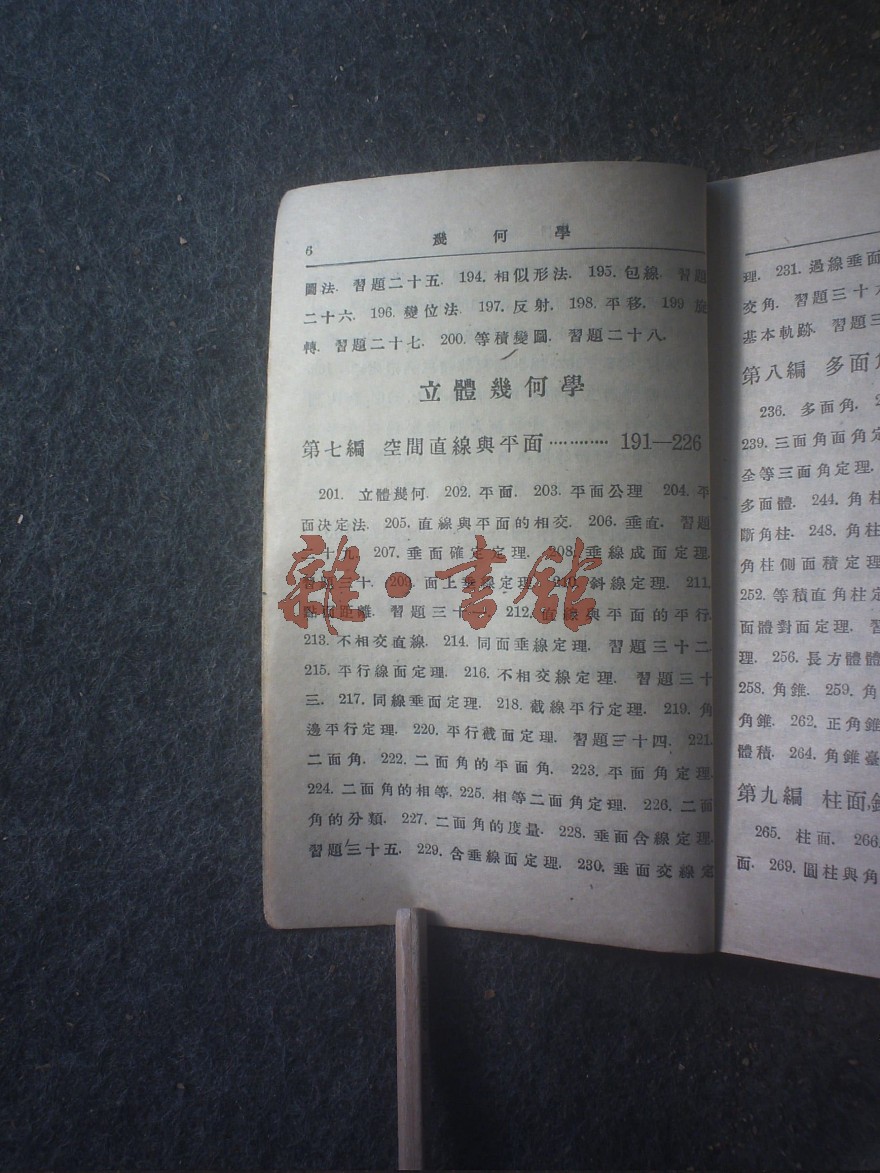 6
幾何學
圖法. 習題二十五. 194. 相似形法. 195. 包線. 習題
二十六. 196. 變位法. 197. 反射. 198. 平移. 199 旋
轉. 習題二十七. 200. 等積變圖. 習題二十八.
立體幾何學
第七編 空間直線與平面………… 191—226
201. 立體幾何. 202. 平面. 203. 平面公理 204. 平
面決定法. 205. 直線與平面的相交. 206. 垂直. 習題
二十九. 207. 垂面確定定理. 208. 垂線成面定理.
習題三十. 209. 面上垂線定理. 210. 斜線定理. 211.
點面距離. 習題三十一. 212. 直線與平面的平行.
213. 不相交直線. 214. 同面垂線定理. 習題三十二.
215. 平行線面定理. 216. 不相交線定理. 習題三十
三. 217. 同線垂面定理. 218. 截線平行定理. 219. 角
邊平行定理. 220. 平行截面定理. 習題三十四. 221.
二面角. 222. 二面角的平面角. 223. 平面角定理.
224. 二面角的相等. 225. 相等二面角定理. 226. 二面
角的分類. 227. 二面角的度量. 228. 垂面含線定理.
習題三十五. 229. 含垂線面定理. 230. 垂面交線定
雜·書館
理. 231. 過線垂面
交角. 習題三十六
基本軌跡. 習題三
第八編 多面角
236. 多面角.
239. 三面角面角定
全等三面角定理.
多面體. 244. 角柱
斷角柱. 248. 角柱
角柱側面積定理
252. 等積直角柱定
面體對面定理. 習
理. 256. 長方體體
258. 角錐. 259. 角
角錐. 262. 正角錐
體積. 264. 角錐臺
第九編 柱面,錐
265. 柱面. 266.
面. 269. 圓柱與角